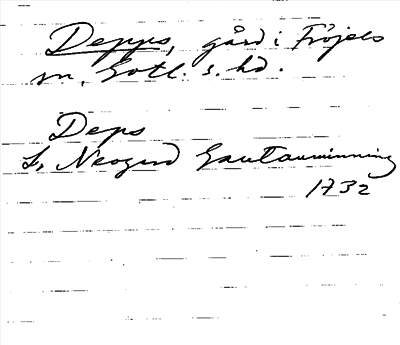 Depps, gård i Fröjels
sn, Gotl. s. hd.
Deps
L, Neogard Gautauminning
1732